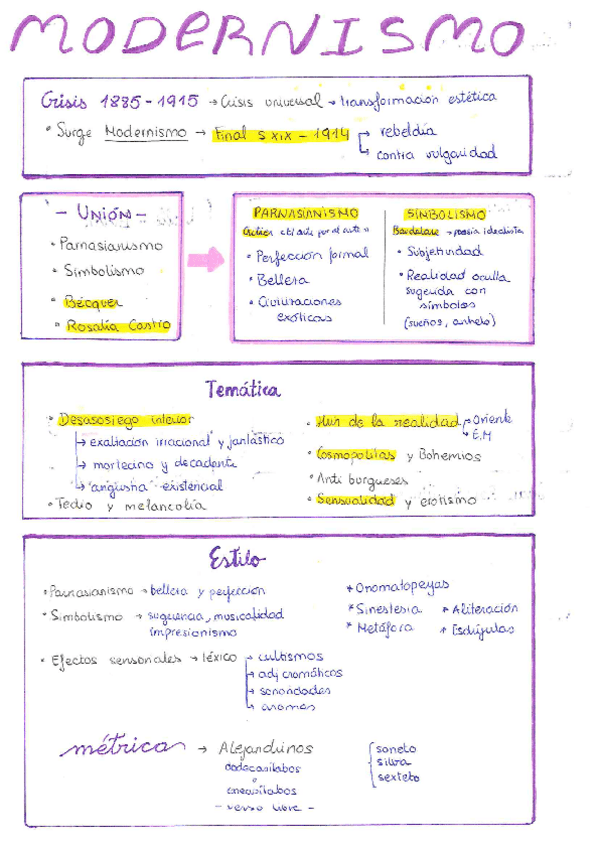 MODERNISMO
Crisis 1885-1915 → Crisis universal → transformación estética
• Surge Modernismo → Final s XIX - 1914 → rebeldía
→ contra vulgaridad
- UNIÓN -
• Parnasianismo
• Simbolismo
• Bécquer
• Rosalía Castro
PARNASIANISMO
Gautier el arte por el arte
• Perfección formal
• Belleza
• Civilizaciones
exóticas
SIMBOLISMO
Baudelaire → poesía idealista
• Subjetividad
• Realidad oculta
sugerida con
símbolos
(sueños, anhelo)
Temática
• Desasosiego interior
→ exaltación irracional y fantástico
→ mortecino y decadente
→ "angustia" existencial
• Tedio y melancolía
• Huir de la realidad → Oriente
→ E.M
• Cosmopolitas y Bohemios
• Anti burgueses
• Sensualidad y erotismo
Estilo
• Parnasianismo → belleza y perfección
• Simbolismo → sugerencia, musicalidad
impresionismo
• Efectos sensoriales → léxico → cultismos
→ adj cromáticos
→ sonoridades
→ aromas
* Onomatopeyas
* Sinestesia * Aliteración
* Metáfora * Esdrújulas
métrica → Alejandrinos
dodecasílabos
o
eneasílabos
- verso libre -
soneto
silva
sexteto